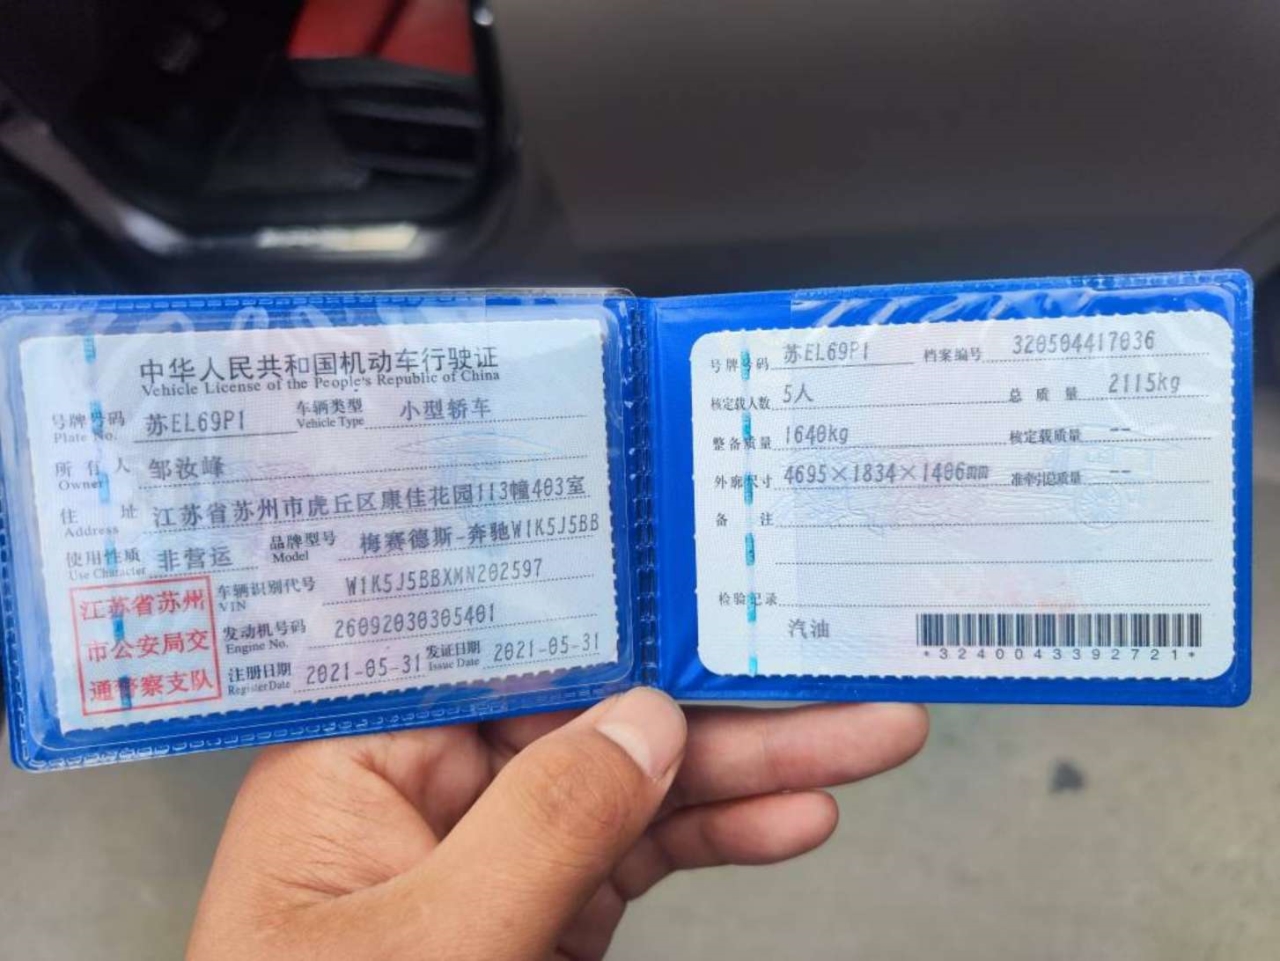 中华人民共和国机动车行驶证
Vehicle License of the People's Republic of China
号牌号码 苏EL69P1 车辆类型 小型轿车
Plate No. Vehicle Type
所有人 邹汝峰
Owner
住址 江苏省苏州市虎丘区康佳花园113幢403室
Address
使用性质 非营运 品牌型号 梅赛德斯-奔驰W1K5J5BB
Use Character Model
车辆识别代号 W1K5J5BBXMN202597
VIN
发动机号码 26092030305401
Engine No.
注册日期 2021-05-31 发证日期 2021-05-31
Register Date Issue Date
江苏省苏州
市公安局交
通警察支队
号牌号码 苏EL69P1 档案编号 320504417036
核定载人数 5人 总质量 2115kg
整备质量 1640kg 核定载质量 --
外廓尺寸 4695×1834×1406mm 准牵引总质量 --
备注
检验记录
汽油
*3240043392721*